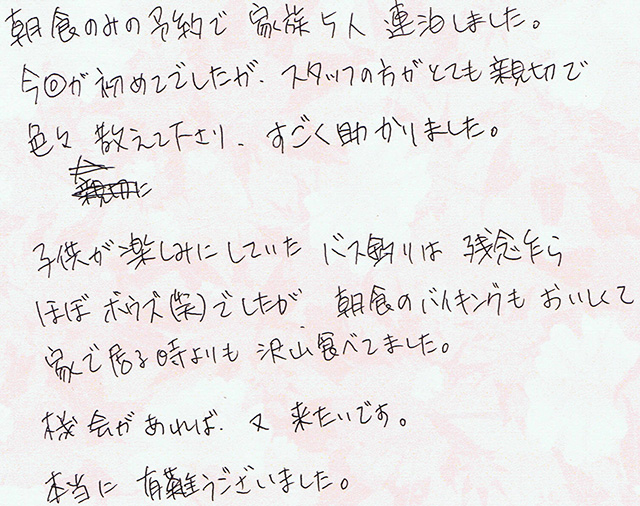 朝食のみの予約で 家族5人 連泊しました。
今回が初めてでしたが、スタッフの方がとても親切で
色々 教えて下さり、すごく助かりました。
親切に
子供が楽しみにしていた バス釣りは 残念ながら
ほぼ ボウズ(笑)でしたが、朝食のバイキングも おいしくて
家で居る時よりも 沢山食べてました。
機会があれば、又 来たいです。
本当に 有難うございました。